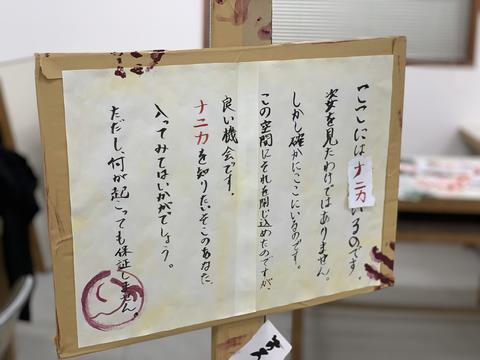 ここにはナニカいるのです。
姿を見たわけではありません。
しかし確かにここにいるのです。
この空間にそれを閉じ込めたのですが、
良い機会です。
ナニカを知りたいそこのあなた、
入ってみてはいかがでしょう。
ただし、何が起こっても保証しません。